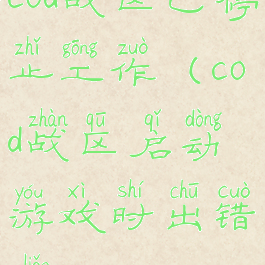 cod战区已停
zhǐ gōng zuò
止工作（co
zhàn qū qǐ dòng
d战区启动
yóu xì shí chū cuò
游戏时出错